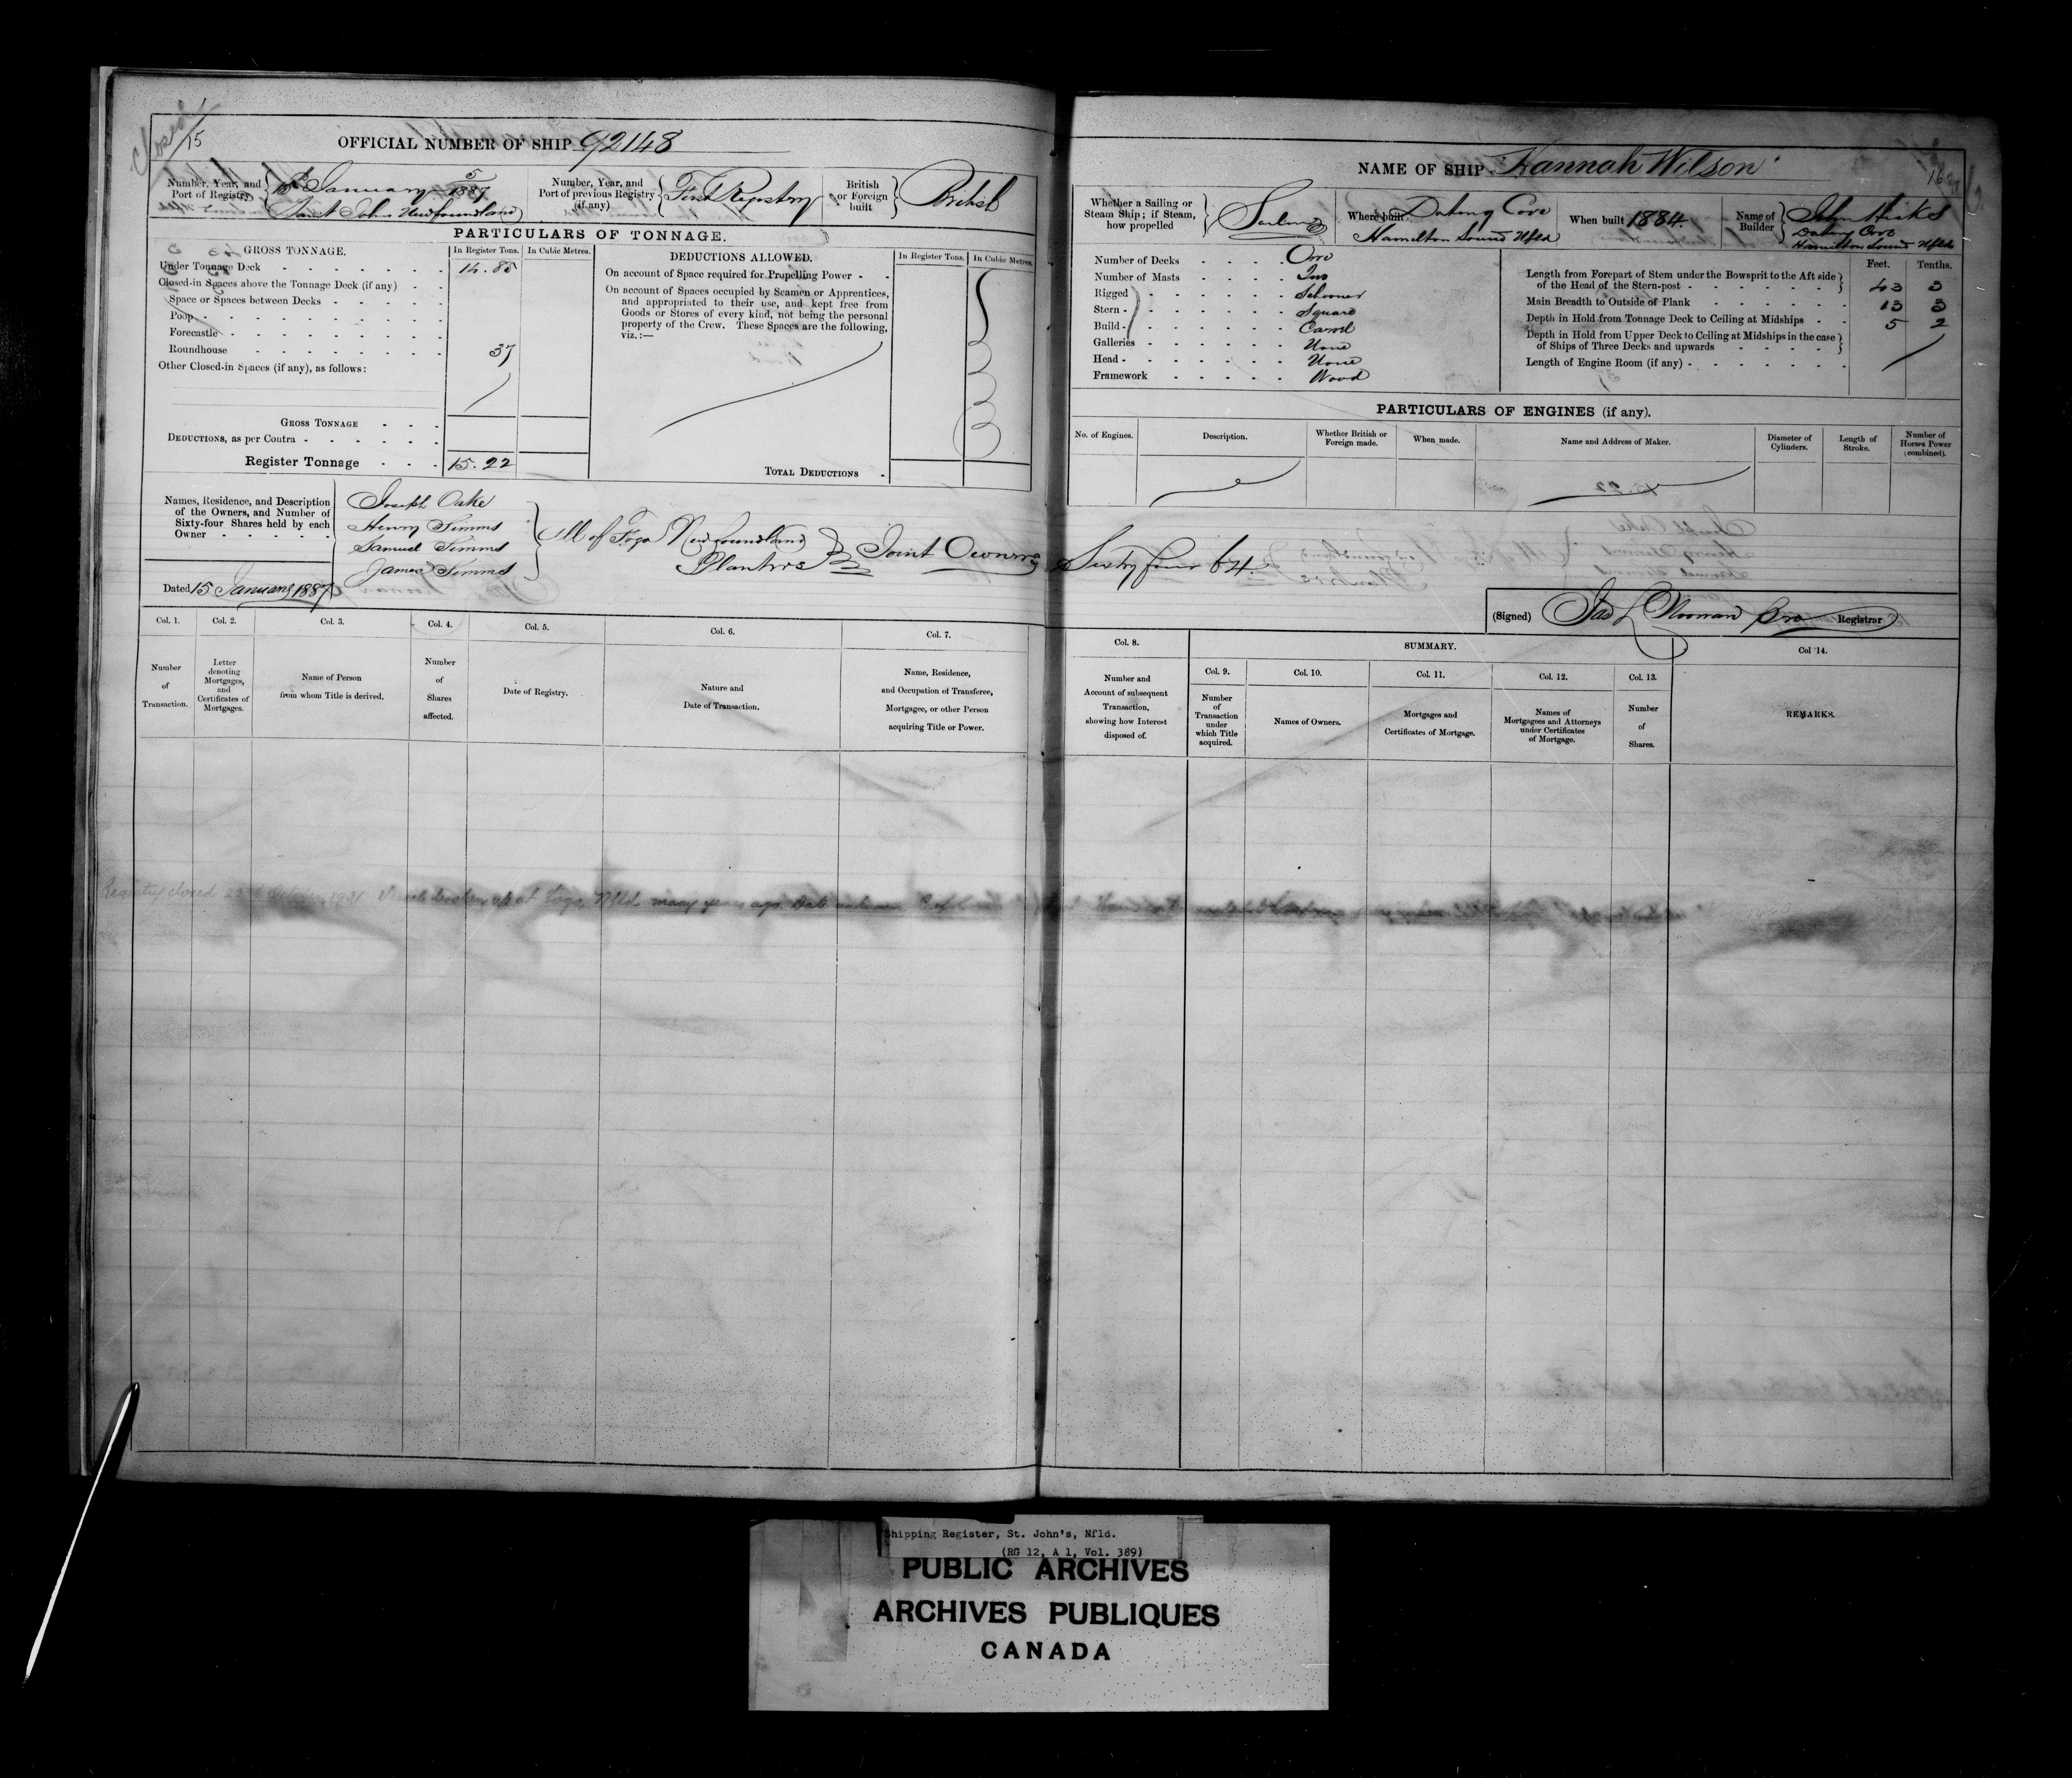 Closed
15
OFFICIAL NUMBER OF SHIP 92148
Number, Year, and Port of Registry 5 15th January 1887 Saint Johns Newfoundland
Number, Year, and Port of previous Registry (if any) First Registry
British or Foreign built British
PARTICULARS OF TONNAGE.
GROSS TONNAGE. In Register Tons. In Cubic Metres.
Under Tonnage Deck 14.85
Closed-in Spaces above the Tonnage Deck (if any)
Space or Spaces between Decks
Poop
Forecastle
Roundhouse 37
Other Closed-in Spaces (if any), as follows:
GROSS TONNAGE
DEDUCTIONS, as per Contra
Register Tonnage 15.22
DEDUCTIONS ALLOWED. In Register Tons. In Cubic Metres.
On account of Space required for Propelling Power
On account of Spaces occupied by Seamen or Apprentices,
and appropriated to their use, and kept free from
Goods or Stores of every kind, not being the personal
property of the Crew. These Spaces are the following,
viz.:—
TOTAL DEDUCTIONS
Names, Residence, and Description
of the Owners, and Number of
Sixty-four Shares held by each
Owner
Joseph Oake
Henry Simms
Samuel Simms
James Simms
All of Fogo Newfoundland
Planters
Joint Owners Sixty four 64
Dated 15 January 1887
NAME OF SHIP "Hannah Wilson"
16
Whether a Sailing or Steam Ship; if Steam, how propelled Sailing
Where built Hamilton Sound Nfld
When built 1884.
Name of Builder John Hicks
Hamilton Sound Nfld
Number of Decks One
Number of Masts Two
Rigged Schooner
Stern Square
Build Carvel
Galleries None
Head None
Framework Wood
Feet. Tenths.
Length from Forepart of Stem under the Bowsprit to the Aft side
of the Head of the Stern-post 43 3
Main Breadth to Outside of Plank 13 3
Depth in Hold from Tonnage Deck to Ceiling at Midships 5 2
Depth in Hold from Upper Deck to Ceiling at Midships in the case
of Ships of Three Decks and upwards
Length of Engine Room (if any)
PARTICULARS OF ENGINES (if any).
No. of Engines. Description. Whether British or Foreign made. When made. Name and Address of Maker. Diameter of Cylinders. Length of Stroke. Number of Horses Power (combined).
(Signed) Jas L Noonan Pro Registrar
Col. 1. Col. 2. Col. 3. Col. 4. Col. 5. Col. 6. Col. 7.
Number of Transaction.
Letter denoting Mortgages, and Certificates of Mortgages.
Name of Person from whom Title is derived.
Number of Shares affected.
Date of Registry.
Nature and Date of Transaction.
Name, Residence, and Occupation of Transferee, Mortgagee, or other Person acquiring Title or Power.
Col. 8. SUMMARY. Col 14.
Col. 9. Col. 10. Col. 11. Col. 12. Col. 13.
Number and Account of subsequent Transaction, showing how Interest disposed of.
Number of Transaction under which Title acquired.
Names of Owners.
Mortgages and Certificates of Mortgage.
Names of Mortgagees and Attorneys under Certificates of Mortgage.
Number of Shares.
REMARKS.
Registry closed 22nd October 1921 Vessel broken up at Fogo, Nfld many years ago. Date unknown
Shipping Register, St. John's, Nfld.
(RG 12, A 1, Vol. 389)
PUBLIC ARCHIVES
ARCHIVES PUBLIQUES
CANADA